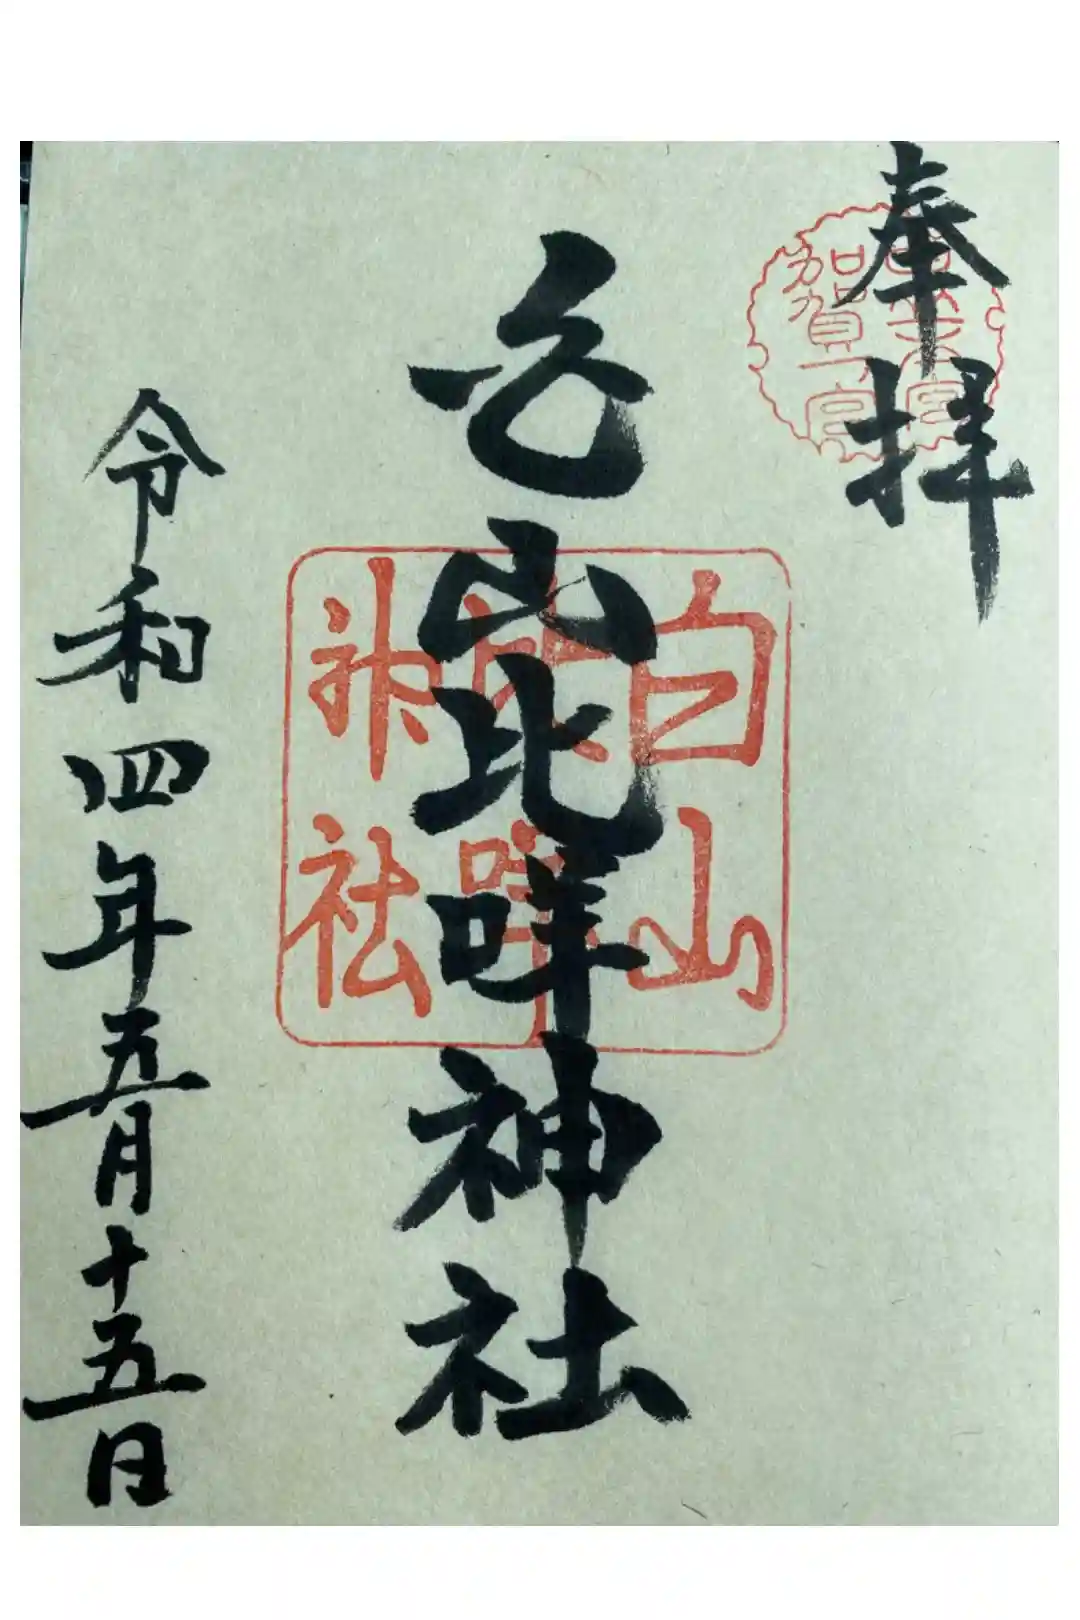 奉拝
加賀一宮
白山比咩神社
白山
比咩
神社
令和四年五月十五日